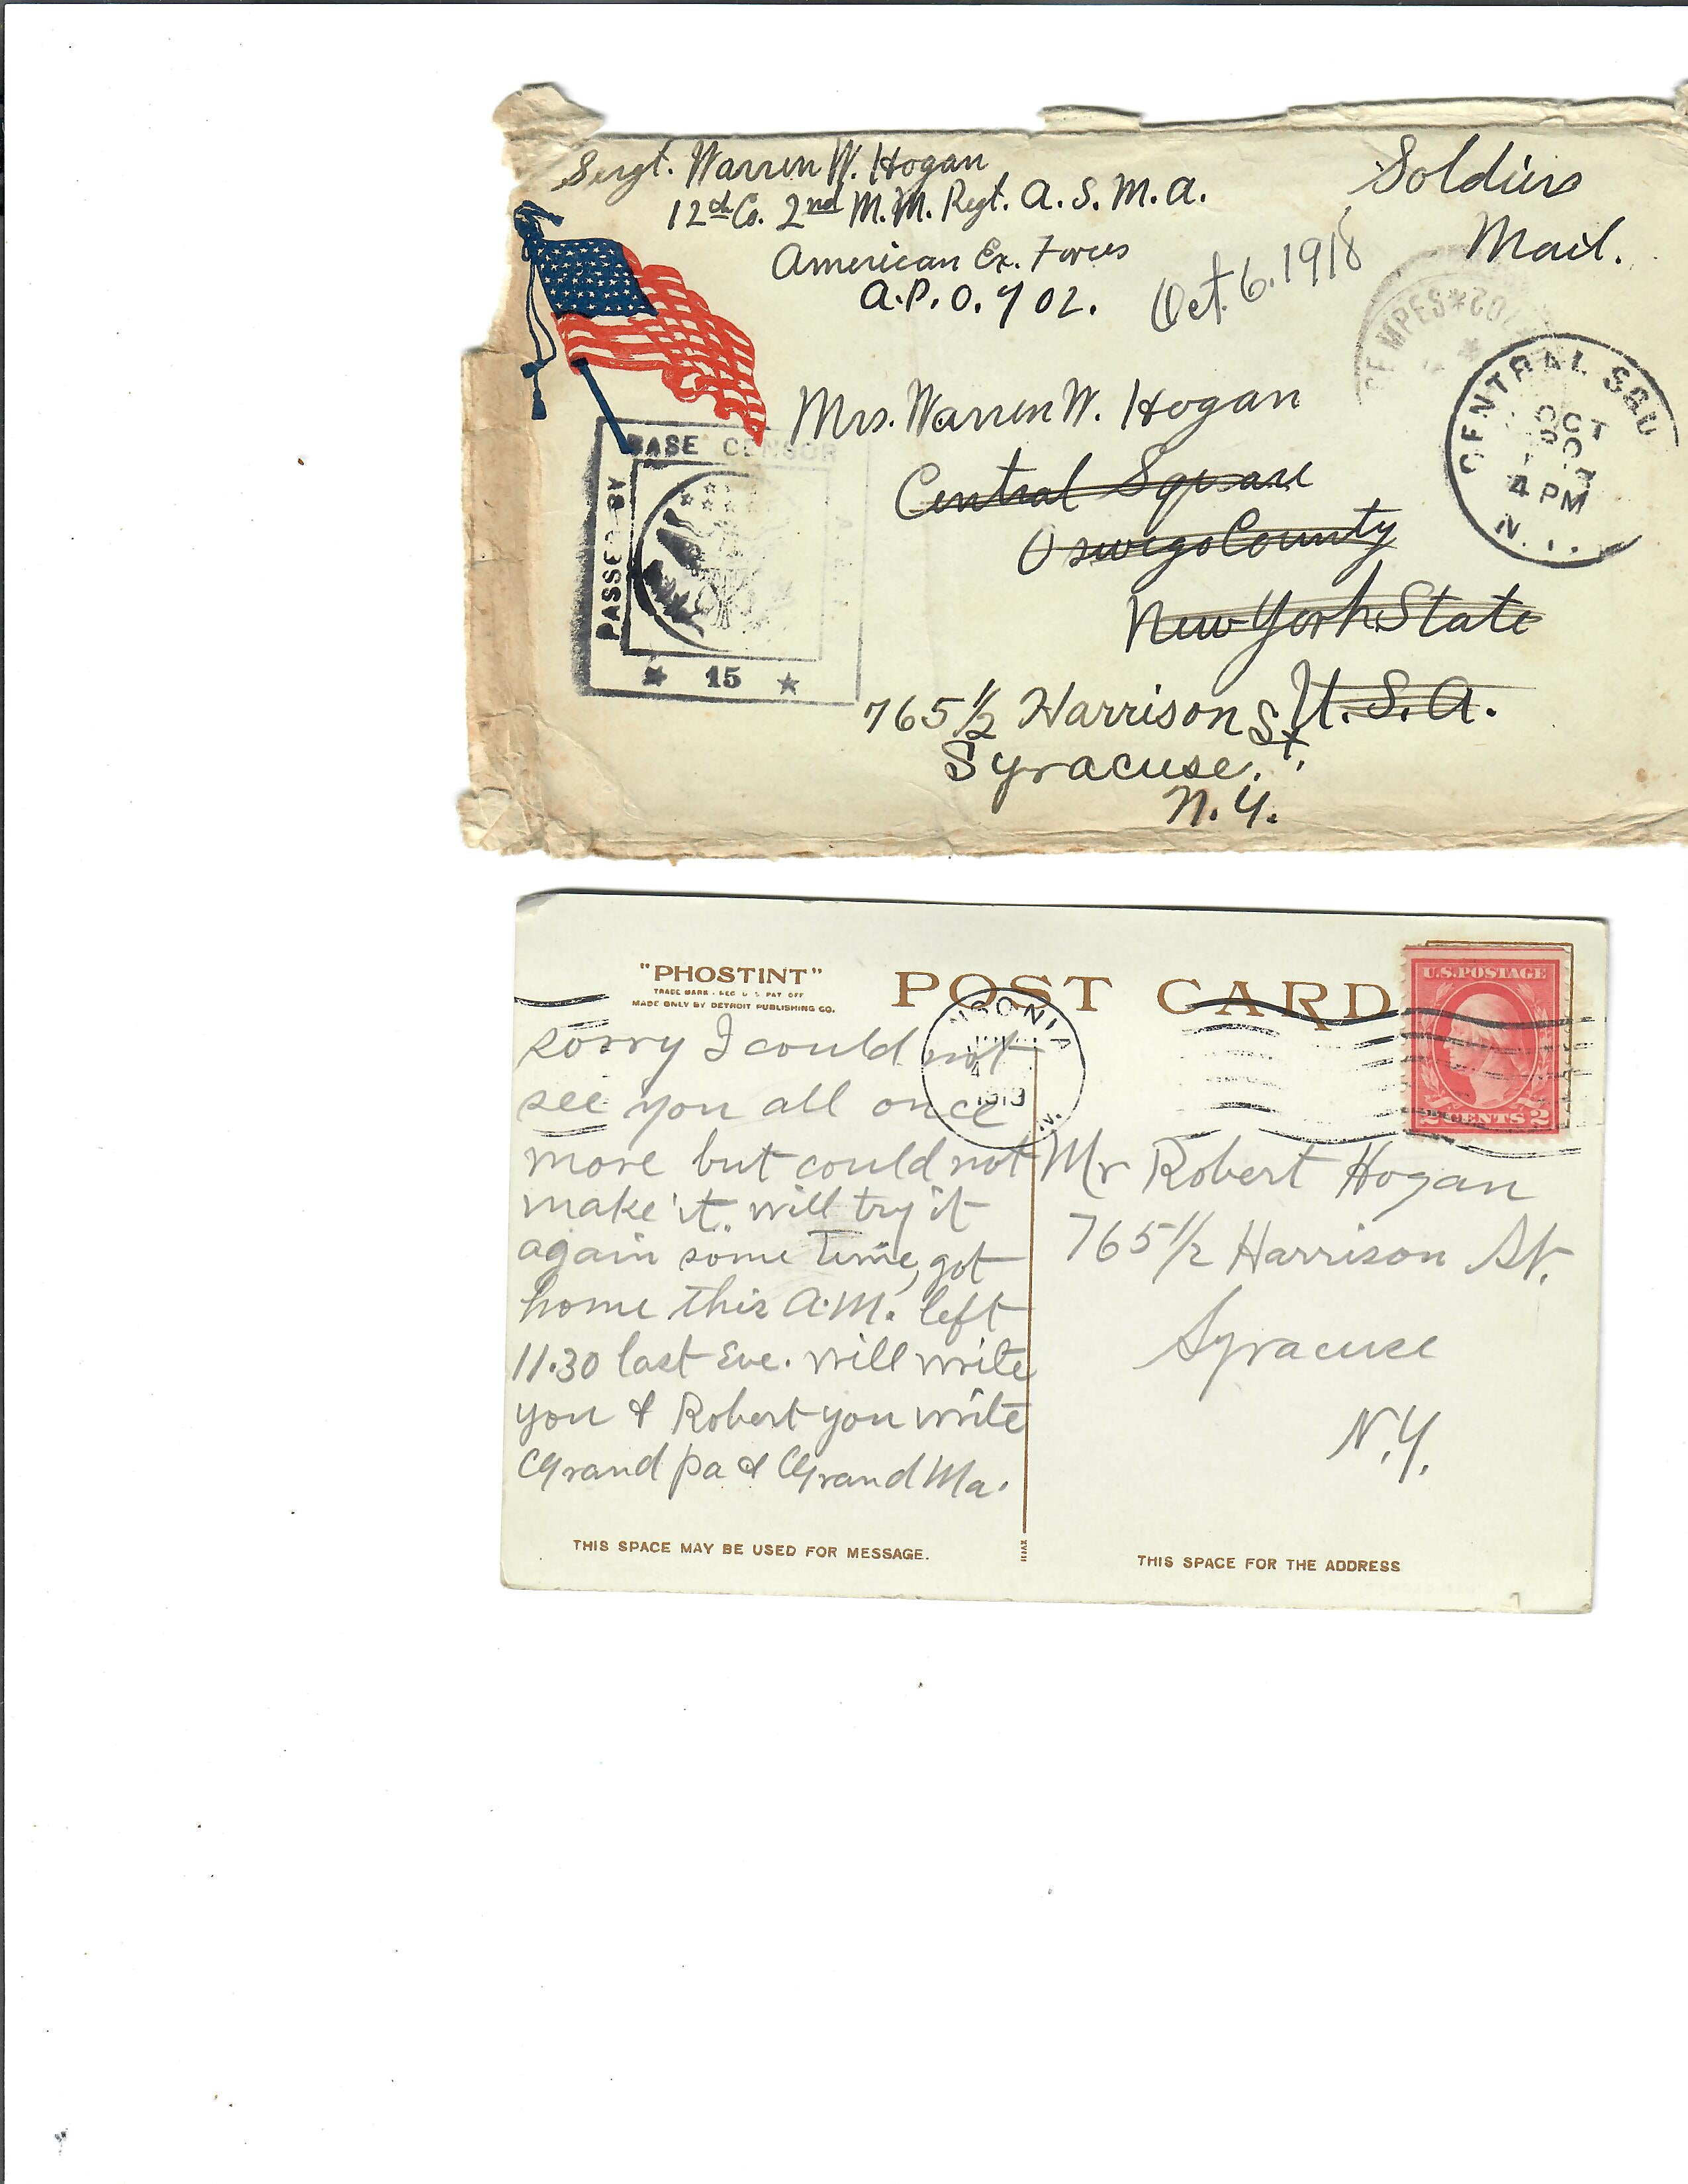 Sergt. Warren W. Hogan
12th Co. 2nd M.M. Regt. A. S. M. A.
American Ex. Forces
A.P.O. 702.
Oct. 6. 1918
Soldiers
Mail.
*702*
CENTRAL SQU
OCT
4 PM
N.
Mrs. Warren W. Hogan
Central Square
Oswego County
New York State
U.S.A.
765 1/2 Harrison St.
Syracuse.
N.Y.
BASE CENSOR
PASSED BY
★ 15 ★
"PHOSTINT"
TRADE MARK - REG U S PAT OFF
MADE ONLY BY DETROIT PUBLISHING CO.
POST CARD
U.S. POSTAGE
2 CENTS 2
NSONIA
4
1919
sorry I could not
see you all once
more but could not
make it. will try it
again some time, got
home this A.M. left
11.30 last Eve. will write
you & Robert you write
Grand pa & Grand Ma.
Mr Robert Hogan
765 1/2 Harrison St.
Syracuse
N.Y.
THIS SPACE MAY BE USED FOR MESSAGE.
THIS SPACE FOR THE ADDRESS